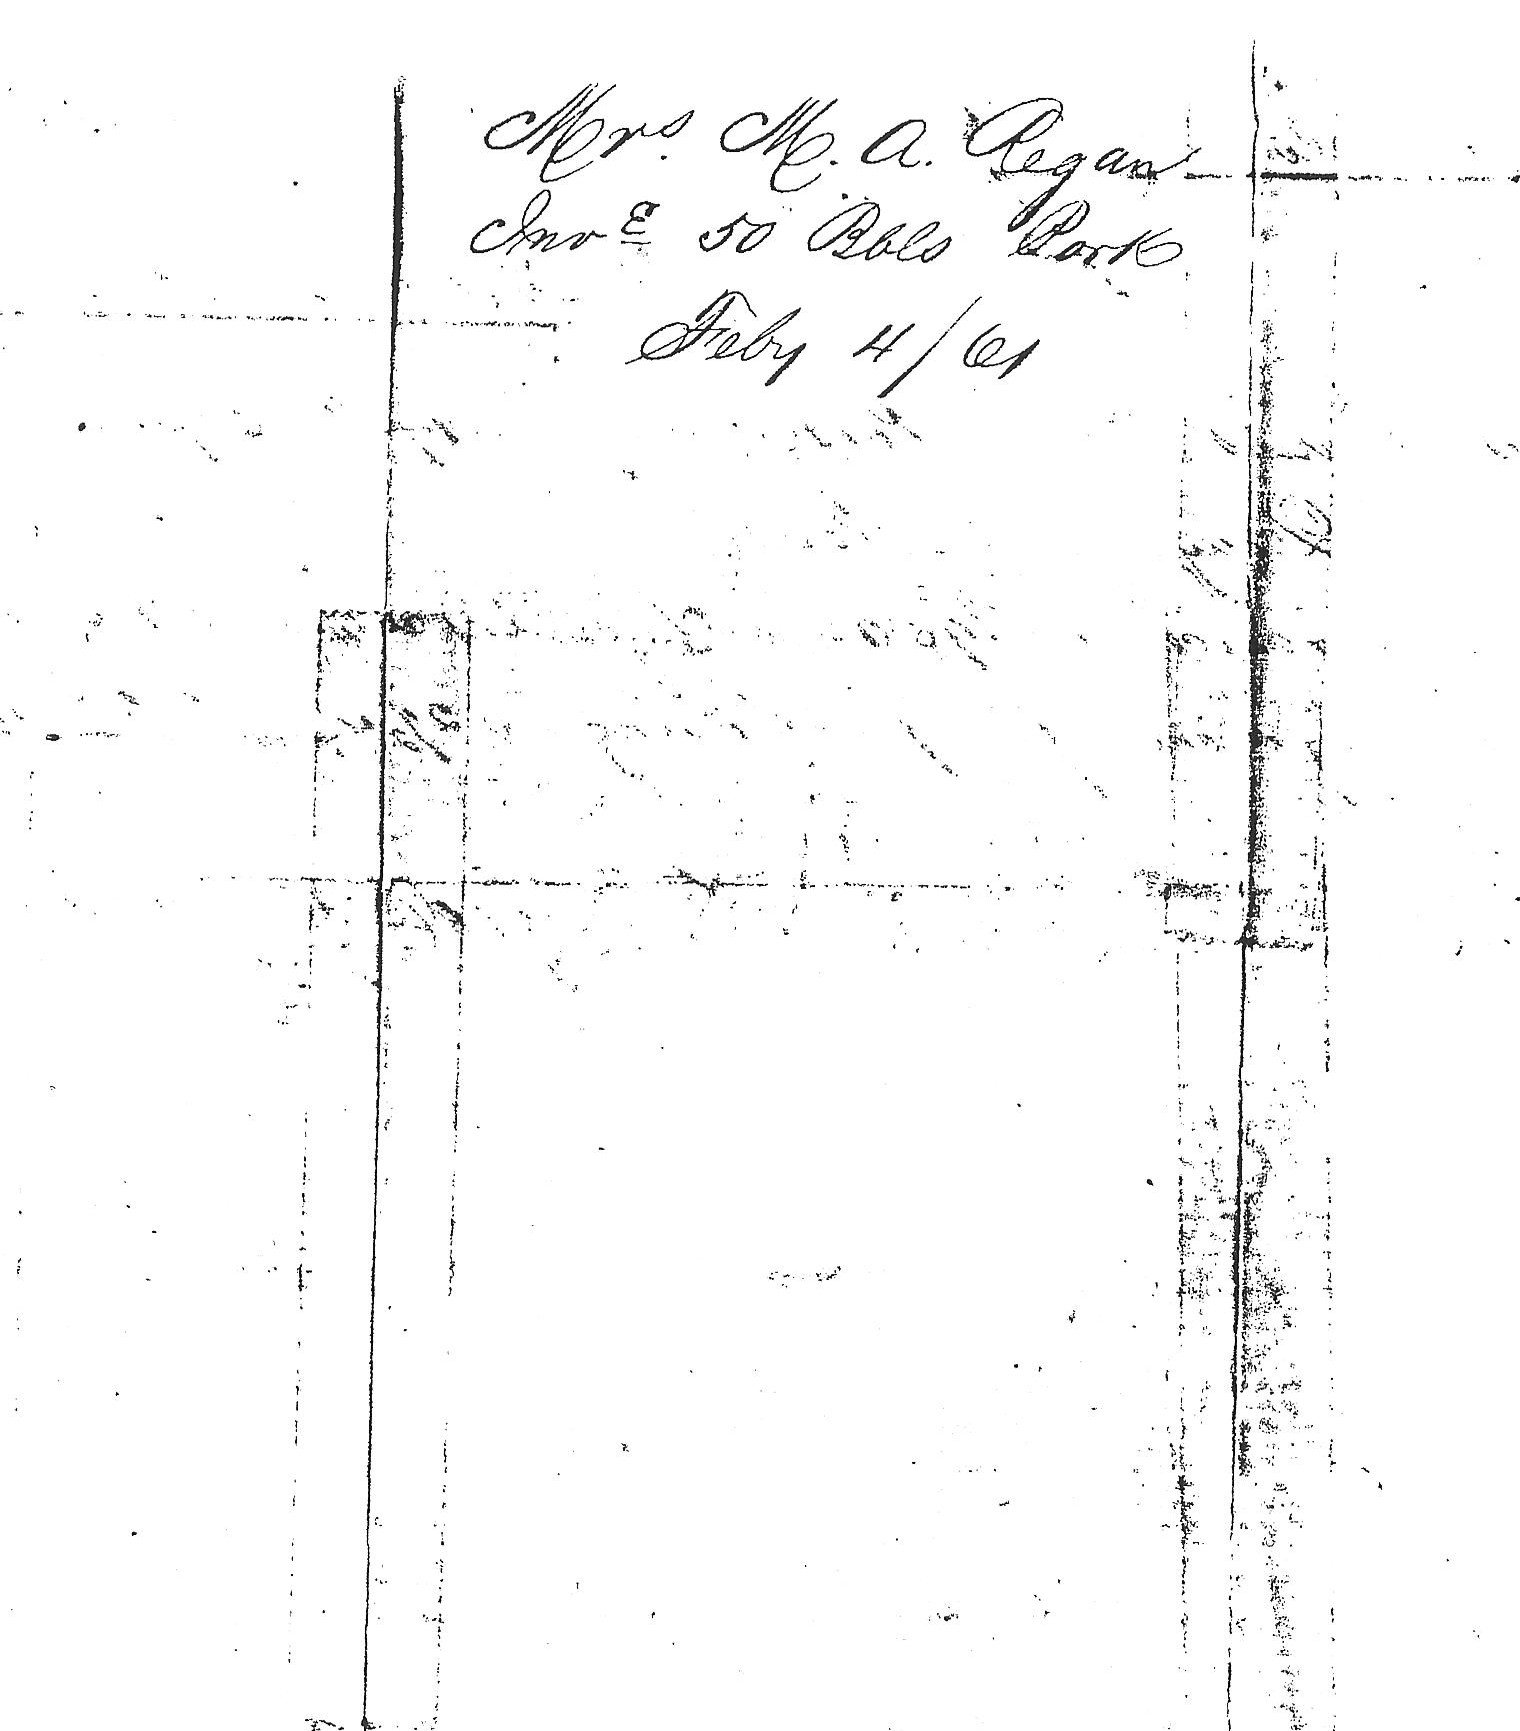 Mrs. M. A. Regan
Inv͟e 50 Bbls Pork
Feby 4/61